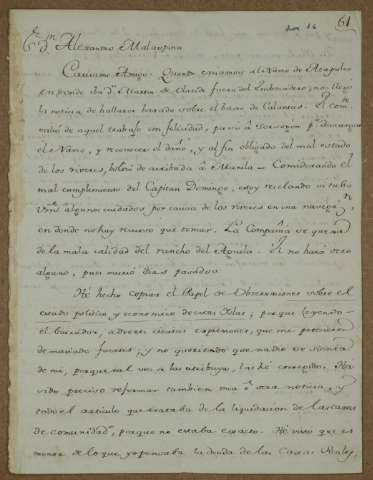 61
Alexandro Malaspina
Carisimo Amigo. Quando estavamos al
en donde de fuera del Embocadero, nos llegó
la noticia de hallarse barado sobre el baxo de Calantas. El
de aquel trabajo con felicidad, pasó á
el Navio, y reconocer el daño, y al fin obligado del mal estado
de los viveres, bolvió de arribada á Manila — Considerando el
mal cumplimiento del Capitan Domingo, estoy rezelando si tubo
algunos cuidados por causa de los viveres en una
en donde no hay recurso que tomar. La Compañia se quexa
de la mala calidad del rancho del Aguila. El no hará otro
alguno, pues murió dias pasados
Hé hecho copiar el Papel de Observaciones sobre el
estado politico y economico de estas Islas; porque leyendo
el borrador, advertí ciertas expresiones, que me parecieron
demasiado fuertes, y no queriendo que nadie se sienta
de mi, porque tal vez se las atribuya, las hé corregido. Ha
sido preciso reformar tambien una ú otra noticia, y
todo el articulo que trataba de la liquidacion de las caxas
de comunidad, porque no estaba exacto. Hé visto que es
menor de lo que yo pensaba la deuda de las Caxas Reales,